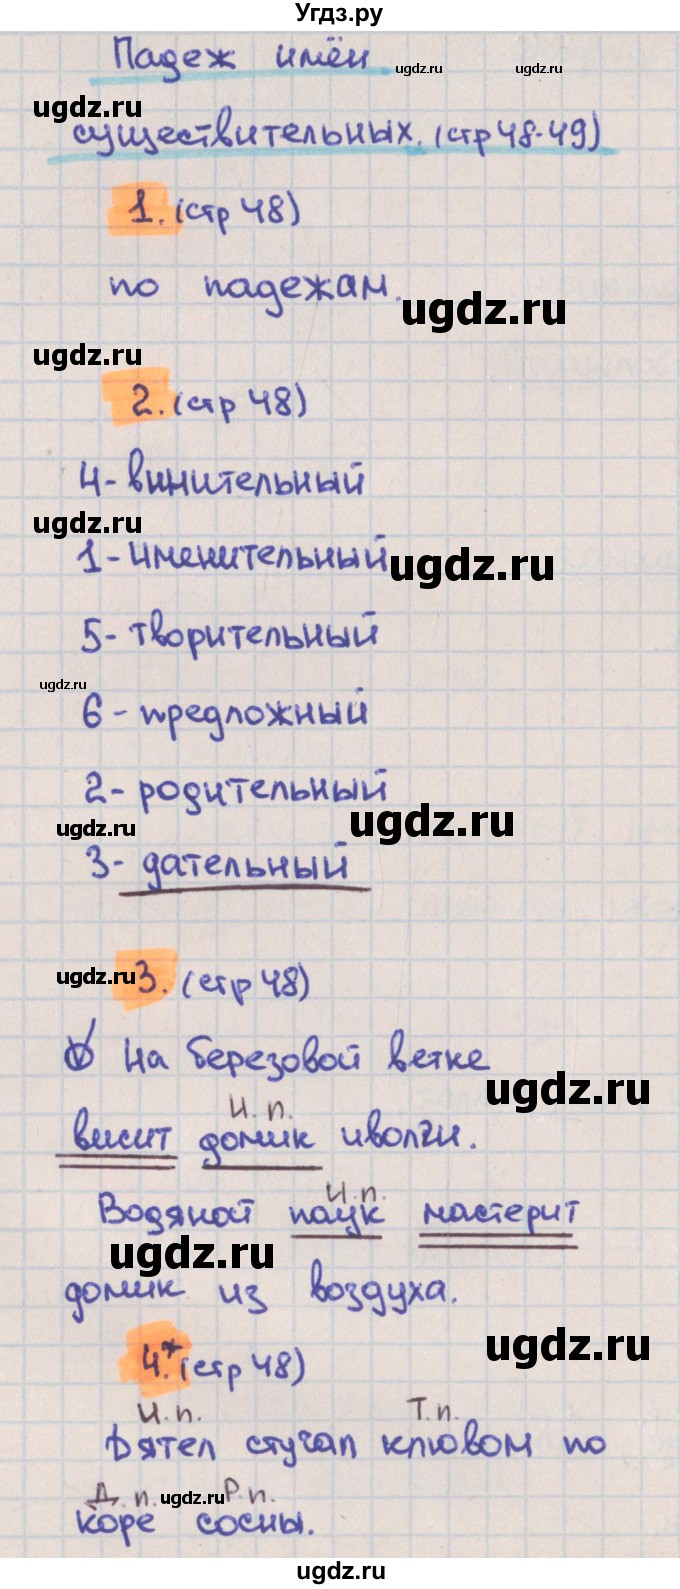 Угдз.ру
Падеж имён
ugdz.ru ugdz.ru
ugdz.ru
существительных. (стр 48-49)
1. (стр 48)
по падежам.
ugdz.ru
ugdz.ru
2. (стр 48)
4- винительный
ugdz.ru
1- именительный
ugdz.ru
5- творительный
ugdz.ru
6 - предложный
2- родительный
ugdz.ru
ugdz.ru
3- дательный
ugdz.ru
3. (стр 48)
На березовой ветке
ugdz.ru
И. п.
висит домик иволги.
И. п.
Водяной паук мастерит
ugdz.ru
домик из воздуха.
ugdz.ru
4.* (стр 48)
И. п. Т. п.
Дятел стучал клювом по
Д. п. ugdz.ru Р. п.
коре сосны.
ugdz.ru